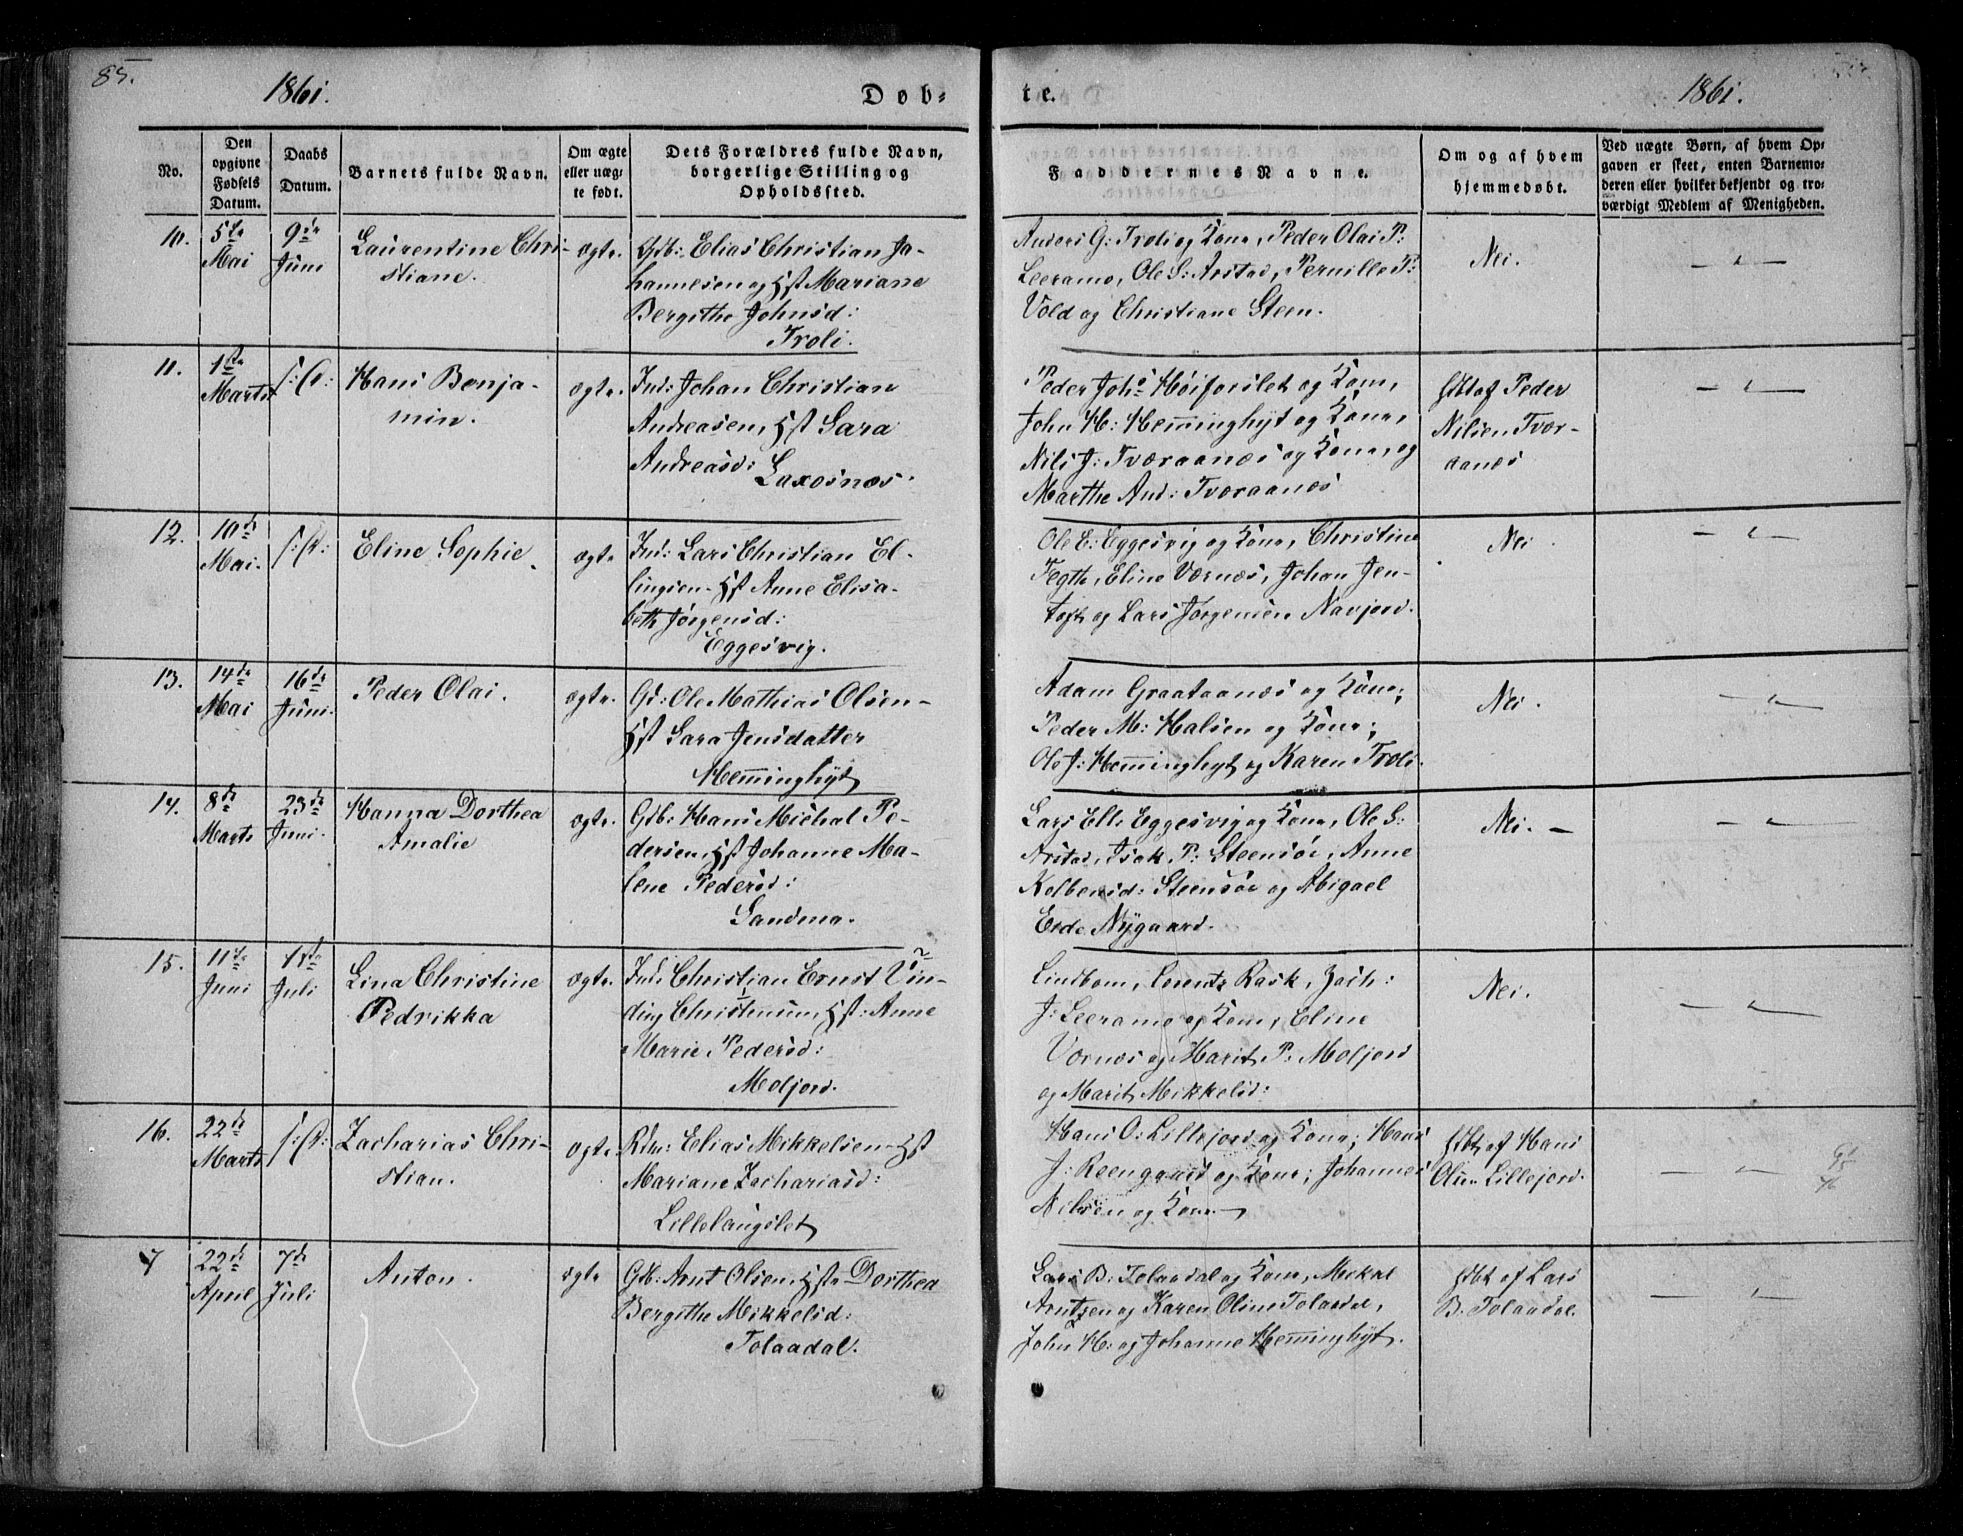 85.
1861.
Døb-
te.
1861.
No.
Den opgivne Fødsels Datum.
Daabs Datum.
Barnets fulde Navn.
Om ægte eller uægte født.
Dets Forældres fulde Navn, borgerlige Stilling og Opholdssted.
Faddernes Navne.
Om og af hvem hjemmedøbt.
Ved uægte Børn, af hvem Opgaven er skeet, enten Barnemoderen eller hvilket bekjendt og troværdigt Medlem af Menigheden.
10.
5te Mai
9de Juni
Laurentine Chri-
stiane.
ægte.
Gdb: Elias Christian Jo-
hannesen og Hst Mariane
Bergithe Johnsd:
Troli.
Anders G: Troli og Kone, Peder Olai P:
Leeramo, Ole S: Arstad, Pernille P:
Vold og Christiane Steen.
Nei.
11.
1ste Marts
s: D:
Hans Benja-
min.
ægte.
Ind: Johan Christian
Andreasen, Hst Sara
Andreasd: Laxosnæs.
Peder Johs Høiforslet og Kone,
John H: Hemminghyt og Kone,
Nils J: Tværaanæs og Kone, og
Marthe And: Tværaanæs
Hdbt af Peder
Nilsen Tvær-
aanæs
12.
10de Mai.
s: D:
Eline Sophie.
ægte
Ind: Lars Christian El-
lingsen - Hst Anne Elisa-
beth Jørgensd:
Eggesvig.
Ole E: Eggesvig og Kone, Christine
Fegth, Eline Værnæs, Johan Jen-
toft og Lars Jørgensen Navjord.
Nei.
13.
14de Mai
16de Juni.
Peder Olai.
ægte.
Gd: Ole Mathias Olsen -
Hst Sara Jensdatter
Hemminghyt
Adam Graataanæs og Kone;
Peder M: Halsen og Kone;
Ole J: Hemminghyt og Karen Troli.
Nei.
14.
8de Marts
23de Juni.
Hanna Dorthea
Amalie
ægte.
Gdb: Hans Michal Pe-
dersen, Hst Johanne Ma-
lene Pedersd:
Sandmo.
Lars Ell: Eggesvig og Kone, Ole S:
Arstad, Isak P: Steensøe, Anne
Kolbensd: Steensøe og Abigael
Eide Nygaard.
Nei. -
15.
11te Juni
1ste Juli
Lina Christine
Pedrikka
ægte.
Ind: Christian Ernst Vin-
ding Christensen, Hst: Anne
Marie Pedersd:
Moljord.
Lindbom, Lorentz Rask, Zach:
J: Leeramo og Kone, Eline
Værnæs og Marit P: Moljord
og Marit Mikkelsd:
Nei.
16.
22de Marts
s: D:
Zacharias Chri-
stian.
ægte.
Rdm: Elias Mikkelsen - Hst
Mariane Zachariasd:
Lillelangslet
Hans O: Lillejord og Kone; Hans
J: Reengaard og Kone; Johannes
Nilsen og Kone
Hdbt af Hans
Olsen Lillejord.
7
22de April
7de Juli
Anton.
ægte
Gdb: Arnt Olsen, Hst Dorthea
Bergithe Mikkelsd:
Tolaadal.
Lars B: Tolaadal og Kone, Mikal
Arntzen og Karen Oline Tolaadal,
John H: og Johanne Hemminghyt.
Hdbt af Lars
B. Tolaadal.